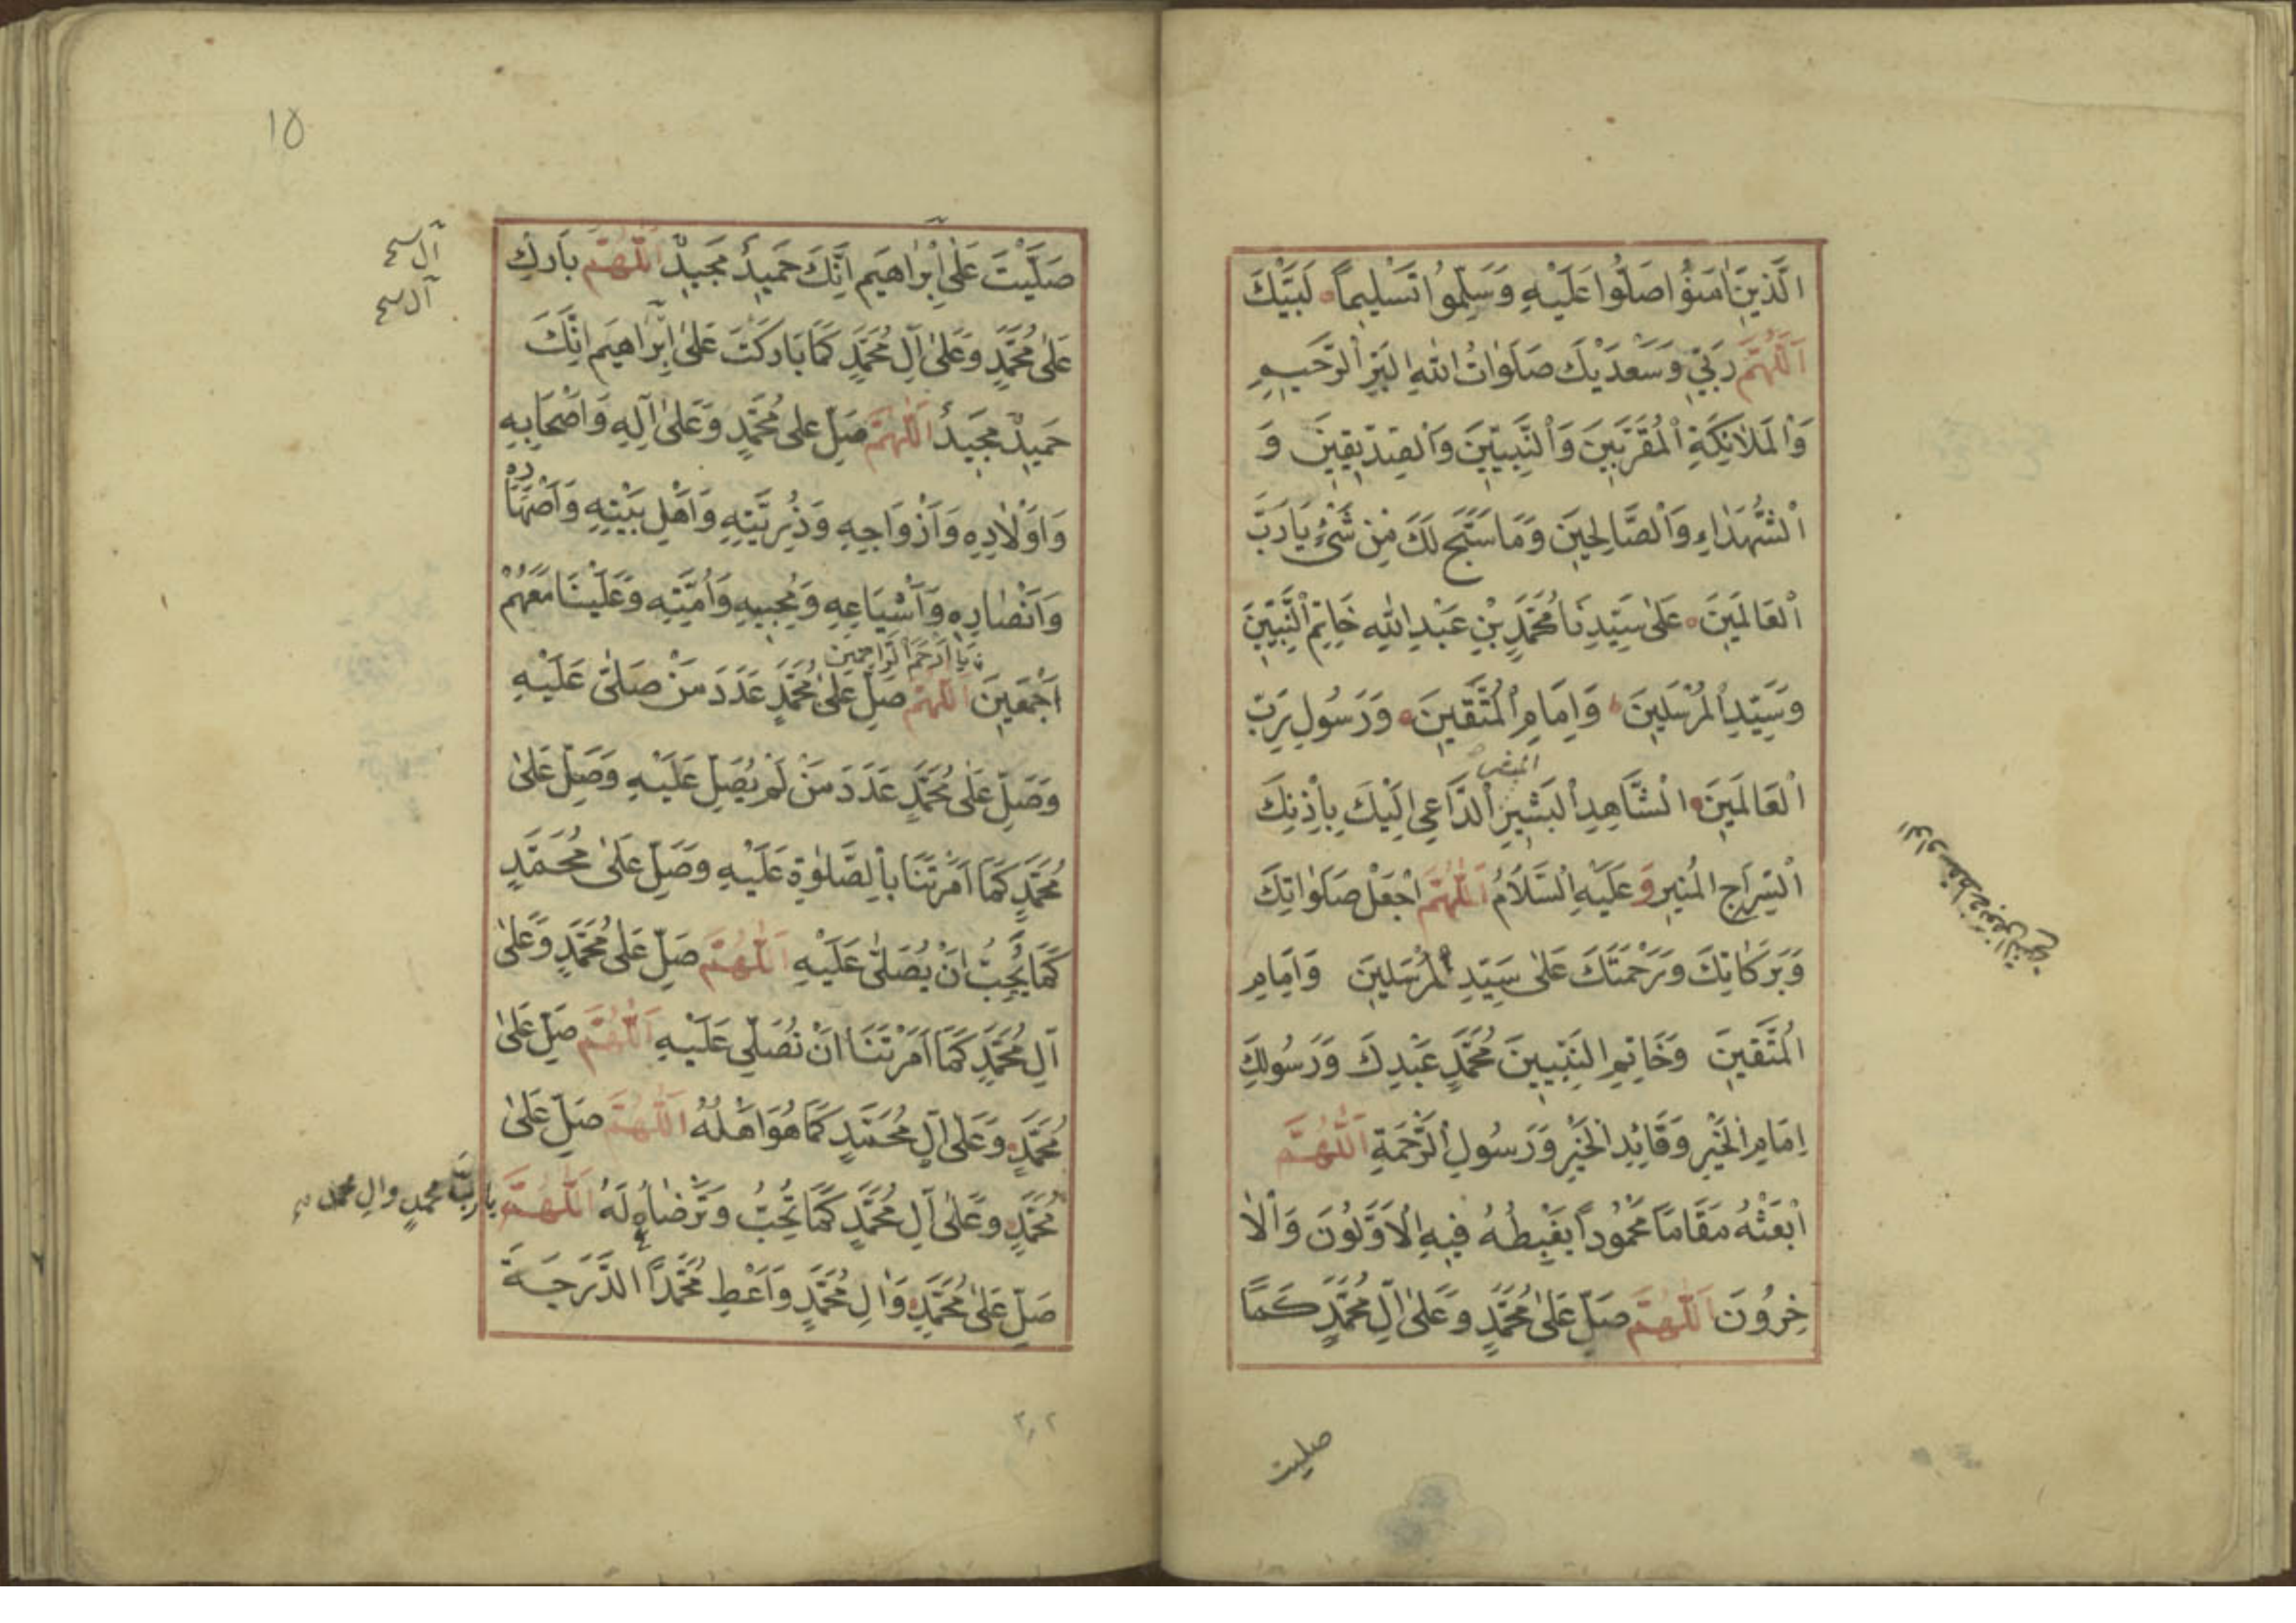 الَّذِينَ اٰمَنُوْا صَلُّوا عَلَيْهِ وَسَلِّمُوا تَسْلِيماً لَبَّيْكَ
اَللّٰهُمَّ رَبِّي وَسَعْدَيْكَ صَلَوَاتُ اللهِ الْبَرِّ الرَّحِيمِ
وَالْمَلَائِكَةِ الْمُقَرَّبِينَ وَالنَّبِيِّينَ وَالصِّدِّيقِينَ وَ
الشُّهَدَاءِ وَالصَّالِحِينَ وَمَا سَبَّحَ لَكَ مِنْ شَيْءٍ يَا رَبَّ
الْعَالَمِينَ عَلٰى سَيِّدِنَا مُحَمَّدٍ بْنِ عَبْدِ اللهِ خَاتِمِ النَّبِيِّينَ
وَسَيِّدِ الْمُرْسَلِينَ وَاِمَامِ الْمُتَّقِينَ وَرَسُولِ رَبِّ
الْعَالَمِينَ الشَّاهِدِ الْبَشِيرِ الدَّاعِي اِلَيْكَ بِاِذْنِكَ
السِّرَاجِ الْمُنِيرِ وَعَلَيْهِ السَّلَامُ اَللّٰهُمَّ اجْعَلْ صَلَوَاتِكَ
وَبَرَكَاتِكَ وَرَحْمَتَكَ عَلٰى سَيِّدِ الْمُرْسَلِينَ وَاِمَامِ
الْمُتَّقِينَ وَخَاتِمِ النَّبِيِّينَ مُحَمَّدٍ عَبْدِكَ وَرَسُولِكَ
اِمَامِ الْخَيْرِ وَقَائِدِ الْخَيْرِ وَرَسُولِ الرَّحْمَةِ اَللّٰهُمَّ
ابْعَثْهُ مَقَامًا مَحْمُودًا يَغْبِطُهُ فِيهِ الْاَوَّلُونَ وَالْاٰ
خِرُونَ اَللّٰهُمَّ صَلِّ عَلٰى مُحَمَّدٍ وَعَلٰى اٰلِ مُحَمَّدٍ كَمَا
صليت
١٥
صَلَّيْتَ عَلٰى اِبْرَاهِيمَ اِنَّكَ حَمِيدٌ مَجِيدٌ اَللّٰهُمَّ بَارِكْ
عَلٰى مُحَمَّدٍ وَعَلٰى اٰلِ مُحَمَّدٍ كَمَا بَارَكْتَ عَلٰى اِبْرَاهِيمَ اِنَّكَ
حَمِيدٌ مَجِيدٌ اَللّٰهُمَّ صَلِّ عَلٰى مُحَمَّدٍ وَعَلٰى اٰلِهِ وَاَصْحَابِهِ
وَاَوْلَادِهِ وَاَزْوَاجِهِ وَذُرِّيَّتِهِ وَاَهْلِ بَيْتِهِ وَاَصْهَارِهِ
وَاَنْصَارِهِ وَاَشْيَاعِهِ وَمُحِبِّيهِ وَاُمَّتِهِ وَعَلَيْنَا مَعَهُمْ
يَا اَرْحَمَ الرَّاحِمِينَ
اَجْمَعِينَ اَللّٰهُمَّ صَلِّ عَلٰى مُحَمَّدٍ عَدَدَ مَنْ صَلّٰى عَلَيْهِ
وَصَلِّ عَلٰى مُحَمَّدٍ عَدَدَ مَنْ لَمْ يُصَلِّ عَلَيْهِ وَصَلِّ عَلٰى
مُحَمَّدٍ كَمَا اَمَرْتَنَا بِالصَّلٰوةِ عَلَيْهِ وَصَلِّ عَلٰى مُحَمَّدٍ
كَمَا يُحِبُّ اَنْ يُصَلّٰى عَلَيْهِ اَللّٰهُمَّ صَلِّ عَلٰى مُحَمَّدٍ وَعَلٰى
اٰلِ مُحَمَّدٍ كَمَا اَمَرْتَنَا اَنْ نُصَلِّيَ عَلَيْهِ اَللّٰهُمَّ صَلِّ عَلٰى
مُحَمَّدٍ وَعَلٰى اٰلِ مُحَمَّدٍ كَمَا هُوَ اَهْلُهُ اَللّٰهُمَّ صَلِّ عَلٰى
مُحَمَّدٍ وَعَلٰى اٰلِ مُحَمَّدٍ كَمَا تُحِبُّ وَتَرْضَاهُ لَهُ اَللّٰهُمَّ يَا رَبَّ مُحَمَّدٍ وَاٰلِ مُحَمَّدٍ
صَلِّ عَلٰى مُحَمَّدٍ وَاٰلِ مُحَمَّدٍ وَاَعْطِ مُحَمَّدًا الدَّرَجَةَ